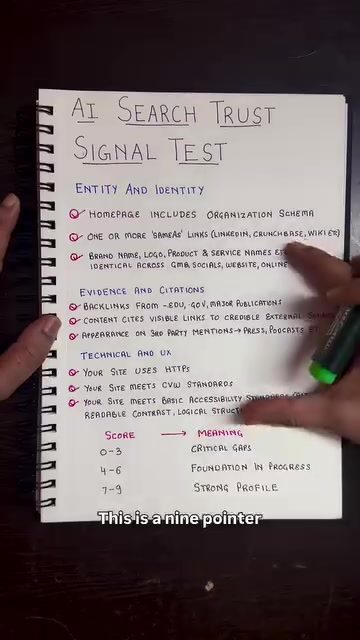 AI SEARCH TRUST
SIGNAL TEST
ENTITY AND IDENTITY
HOMEPAGE INCLUDES ORGANIZATION SCHEMA
ONE OR MORE 'SAMEAS' LINKS (LINKEDIN, CRUNCHBASE, WIKI ETC)
BRAND NAME, LOGO, PRODUCT & SERVICE NAMES
IDENTICAL ACROSS GMB, SOCIALS, WEBSITE, ONLINE
EVIDENCE AND CITATIONS
BACKLINKS FROM -EDU, GOV, MAJOR PUBLICATIONS
CONTENT CITES VISIBLE LINKS TO CREDIBLE EXTERNAL
APPEARANCE ON 3RD PARTY MENTIONS → PRESS, PODCASTS
TECHNICAL AND UX
YOUR SITE USES HTTPS
YOUR SITE MEETS CVW STANDARDS
YOUR SITE MEETS BASIC ACCESSIBILITY STANDARDS
READABLE CONTRAST, LOGICAL
SCORE → MEANING
0-3 CRITICAL GAPS
4-6 FOUNDATION IN PROGRESS
7-9 STRONG PROFILE
This is a nine pointer